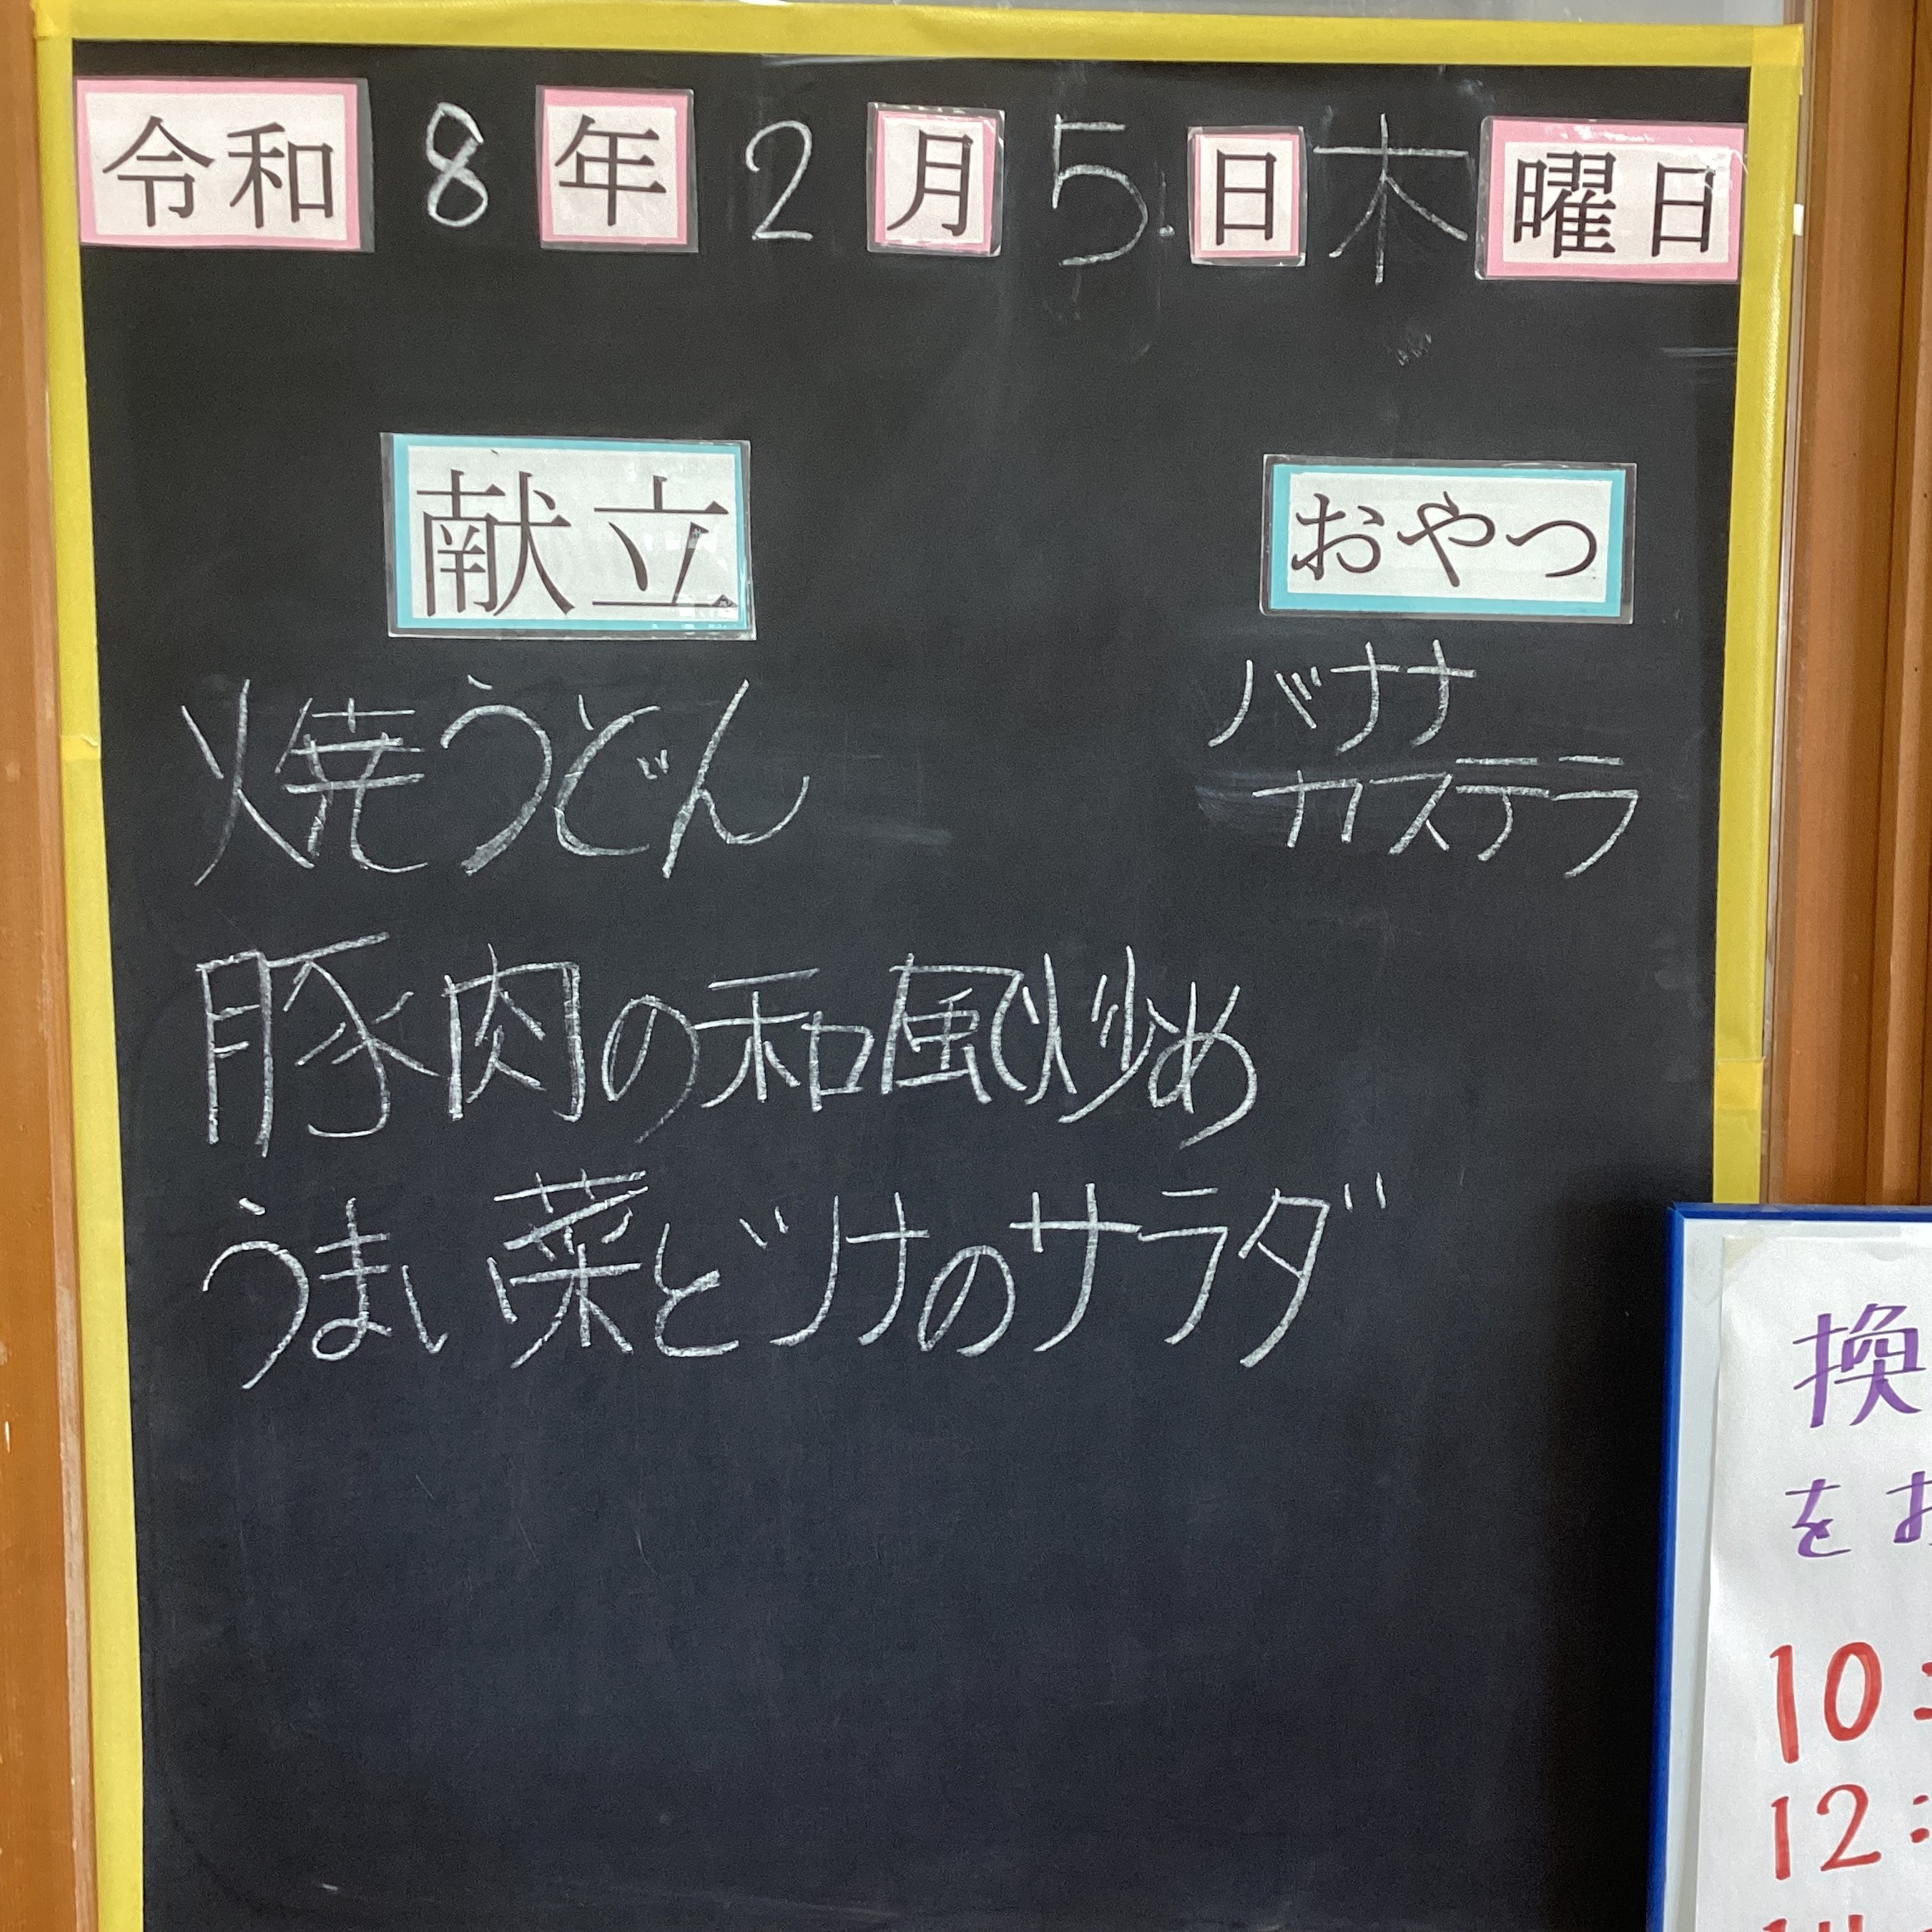 令和 8 年 2 月 5 日 木 曜日
献立
焼うどん
豚肉の和風炒め
うまい菜とツナのサラダ
おやつ
バナナ
カステラ
換
を
10:
12: